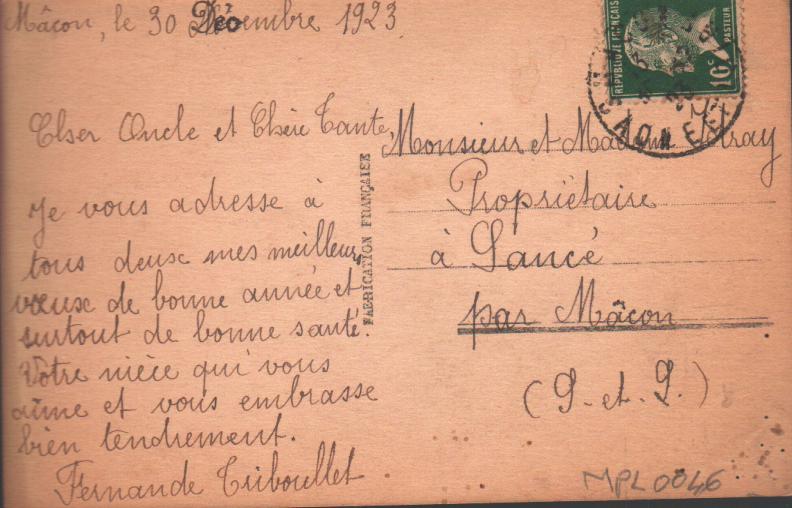 Mâcon, le 30 Décembre 1923
Cher Oncle et Chère Tante,
Je vous adresse à
tous deux mes meilleurs
vœux de bonne année et
surtout de bonne santé.
Votre nièce qui vous
aime et vous embrasse
bien tendrement.
Fernande Triboullet
FABRICATION FRANÇAISE
REPUBLIQUE FRANÇAISE
10c
PASTEUR
Monsieur et Madame
Propriétaire
à Sancé
par Mâcon
(S.-et-L.)
MPL0046